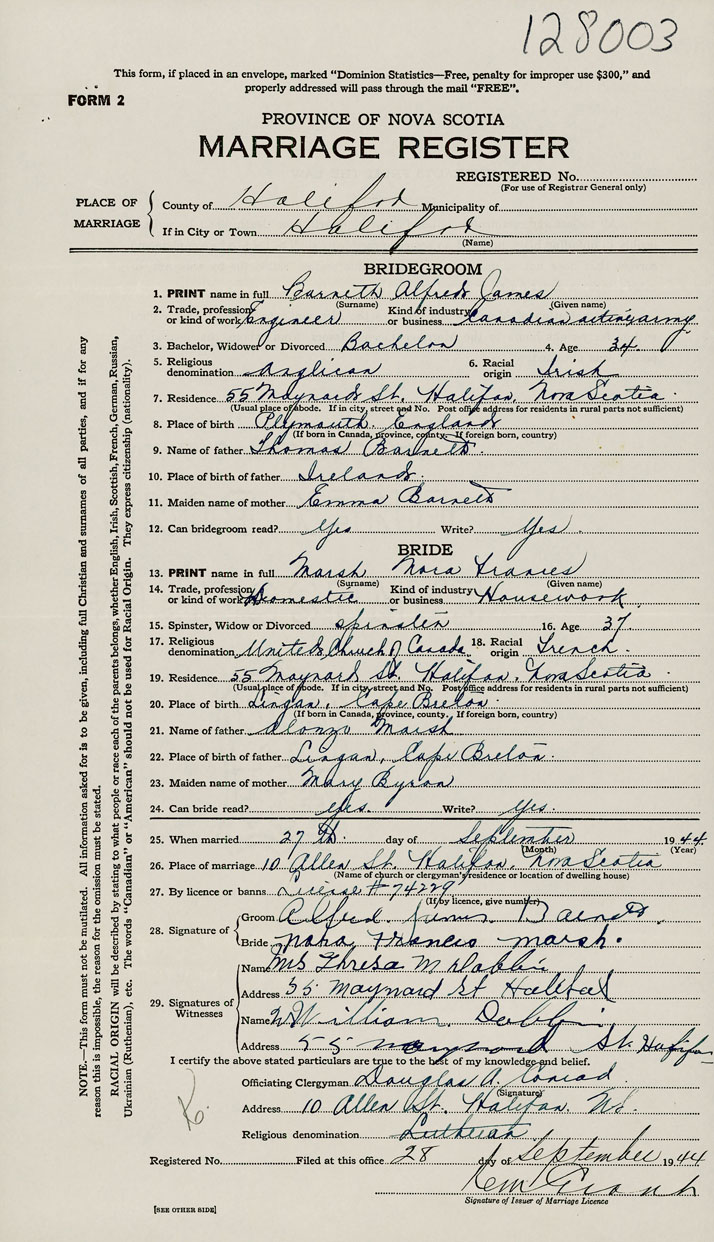 128003
This form, if placed in an envelope, marked "Dominion Statistics—Free, penalty for improper use $300," and
properly addressed will pass through the mail "FREE".
FORM 2
PROVINCE OF NOVA SCOTIA
MARRIAGE REGISTER
REGISTERED No.
(For use of Registrar General only)
PLACE OF MARRIAGE
County of Halifax Municipality of
If in City or Town Halifax
(Name)
BRIDEGROOM
1. PRINT name in full Barnett Alfred James
(Surname) (Given name)
2. Trade, profession or kind of work Engineer Kind of industry or business Canadian active army
3. Bachelor, Widower or Divorced Bachelor 4. Age 34
5. Religious denomination Anglican 6. Racial origin Irish
7. Residence 55 Maynard St. Halifax, Nova Scotia
(Usual place of abode. If in city, street and No. Post office address for residents in rural parts not sufficient)
8. Place of birth Plymouth England
(If born in Canada, province, county. If foreign born, country)
9. Name of father Thomas Barnett
10. Place of birth of father Ireland
11. Maiden name of mother Emma Barnett
12. Can bridegroom read? Yes Write? Yes.
BRIDE
13. PRINT name in full Marsh Nora Francis
(Surname) (Given name)
14. Trade, profession or kind of work Domestic Kind of industry or business Housework
15. Spinster, Widow or Divorced spinster 16. Age 37
17. Religious denomination United Church of Canada 18. Racial origin French.
19. Residence 55 Maynard St. Halifax, Nova Scotia
(Usual place of abode. If in city, street and No. Post office address for residents in rural parts not sufficient)
20. Place of birth Lingan, Cape Breton.
(If born in Canada, province, county. If foreign born, country)
21. Name of father Alonzo Marsh
22. Place of birth of father Lingan, Cape Breton.
23. Maiden name of mother Mary Byron
24. Can bride read? Yes. Write? Yes.
25. When married 27th. day of September 1944
(Month) (Year)
26. Place of marriage 10 Allen St. Halifax, Nova Scotia
(Name of church or clergyman's residence or location of dwelling house)
27. By licence or banns License # 74229
(If by licence, give number)
28. Signature of
Groom Alfred James Barnett.
Bride Nora Francis Marsh.
29. Signatures of Witnesses
Name Mrs Thresa M Dobbin
Address 55 Maynard St Halifax
Name William Dobbin
Address 55 Maynard St. Halifax
I certify the above stated particulars are true to the best of my knowledge and belief.
Officiating Clergyman Douglas A. Conrad.
(Signature)
Address 10 Allen St. Halifax. N.S.
Religious denomination Lutheran
Registered No. Filed at this office 28 day of September 1944
Signature of Issuer of Marriage Licence
[SEE OTHER SIDE]
NOTE.—This form must not be mutilated. All information asked for is to be given, including full Christian and surnames of all parties, and if for any
reason this is impossible, the reason for the omission must be stated.
RACIAL ORIGIN will be described by stating to what people or race each of the parents belongs, whether English, Irish, Scottish, French, German, Russian,
Ukrainian (Ruthenian), etc. The words "Canadian" or "American" should not be used for Racial Origin. They express citizenship (nationality).